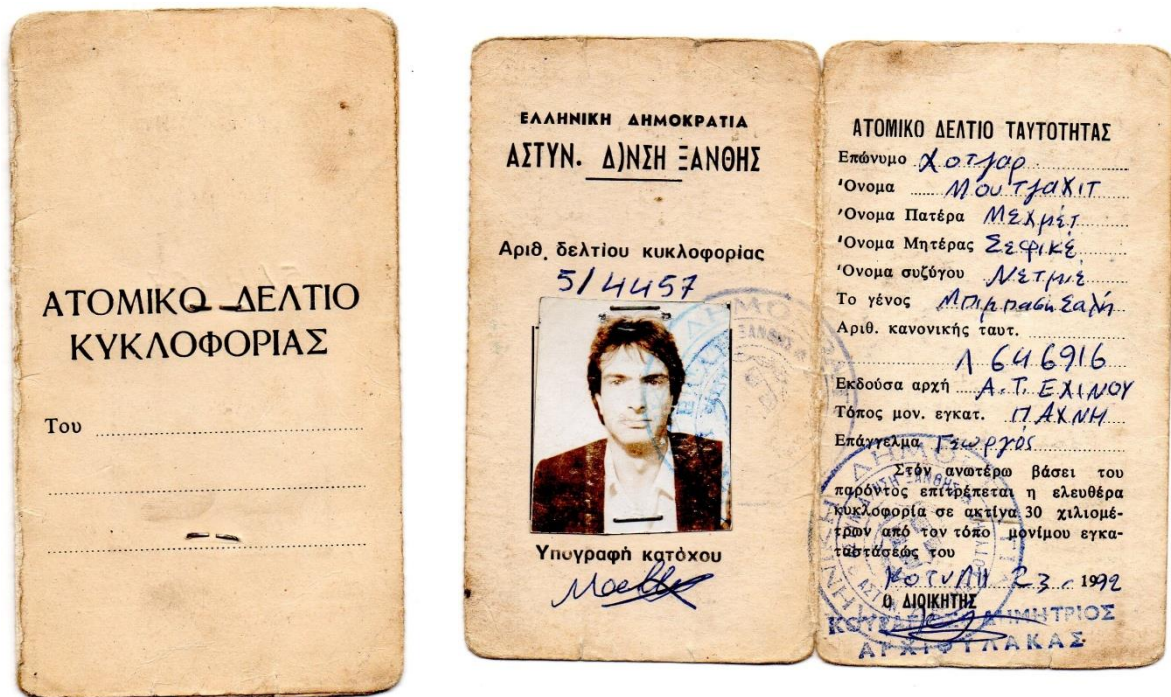 ΑΤΟΜΙΚΟ ΔΕΛΤΙΟ
ΚΥΚΛΟΦΟΡΙΑΣ
Του
ΕΛΛΗΝΙΚΗ ΔΗΜΟΚΡΑΤΙΑ
ΑΣΤΥΝ. Δ)ΝΣΗ ΞΑΝΘΗΣ
Αριθ. δελτίου κυκλοφορίας
5/4457
Υπογραφή κατόχου
ΑΤΟΜΙΚΟ ΔΕΛΤΙΟ ΤΑΥΤΟΤΗΤΑΣ
Επώνυμο Χοτζαρ
'Ονομα Μουτζαχιτ
'Ονομα Πατέρα Μεχμέτ
'Ονομα Μητέρας Σεφικέ
'Ονομα συζύγου
Το γένος
Αριθ. κανονικής ταυτ.
Λ 646916
Εκδούσα αρχή Α.Τ. ΕΧΙΝΟΥ
Τόπος μον. εγκατ. ΠΑΧΝΗ
Επάγγελμα Γεωργός
Στόν ανωτέρω βάσει του
παρόντος επιτρέπεται η ελευθέρα
κυκλοφορία σε ακτίνα 30 χιλιομέ-
τρων από τον τόπο μονίμου εγκα-
ταστάσεώς του
ΚΟΤΥΛΗ 23 - 1992
Ο ΔΙΟΙΚΗΤΗΣ
ΔΗΜΗΤΡΙΟΣ
ΑΡΧΙΦΥΛΑΚΑΣ